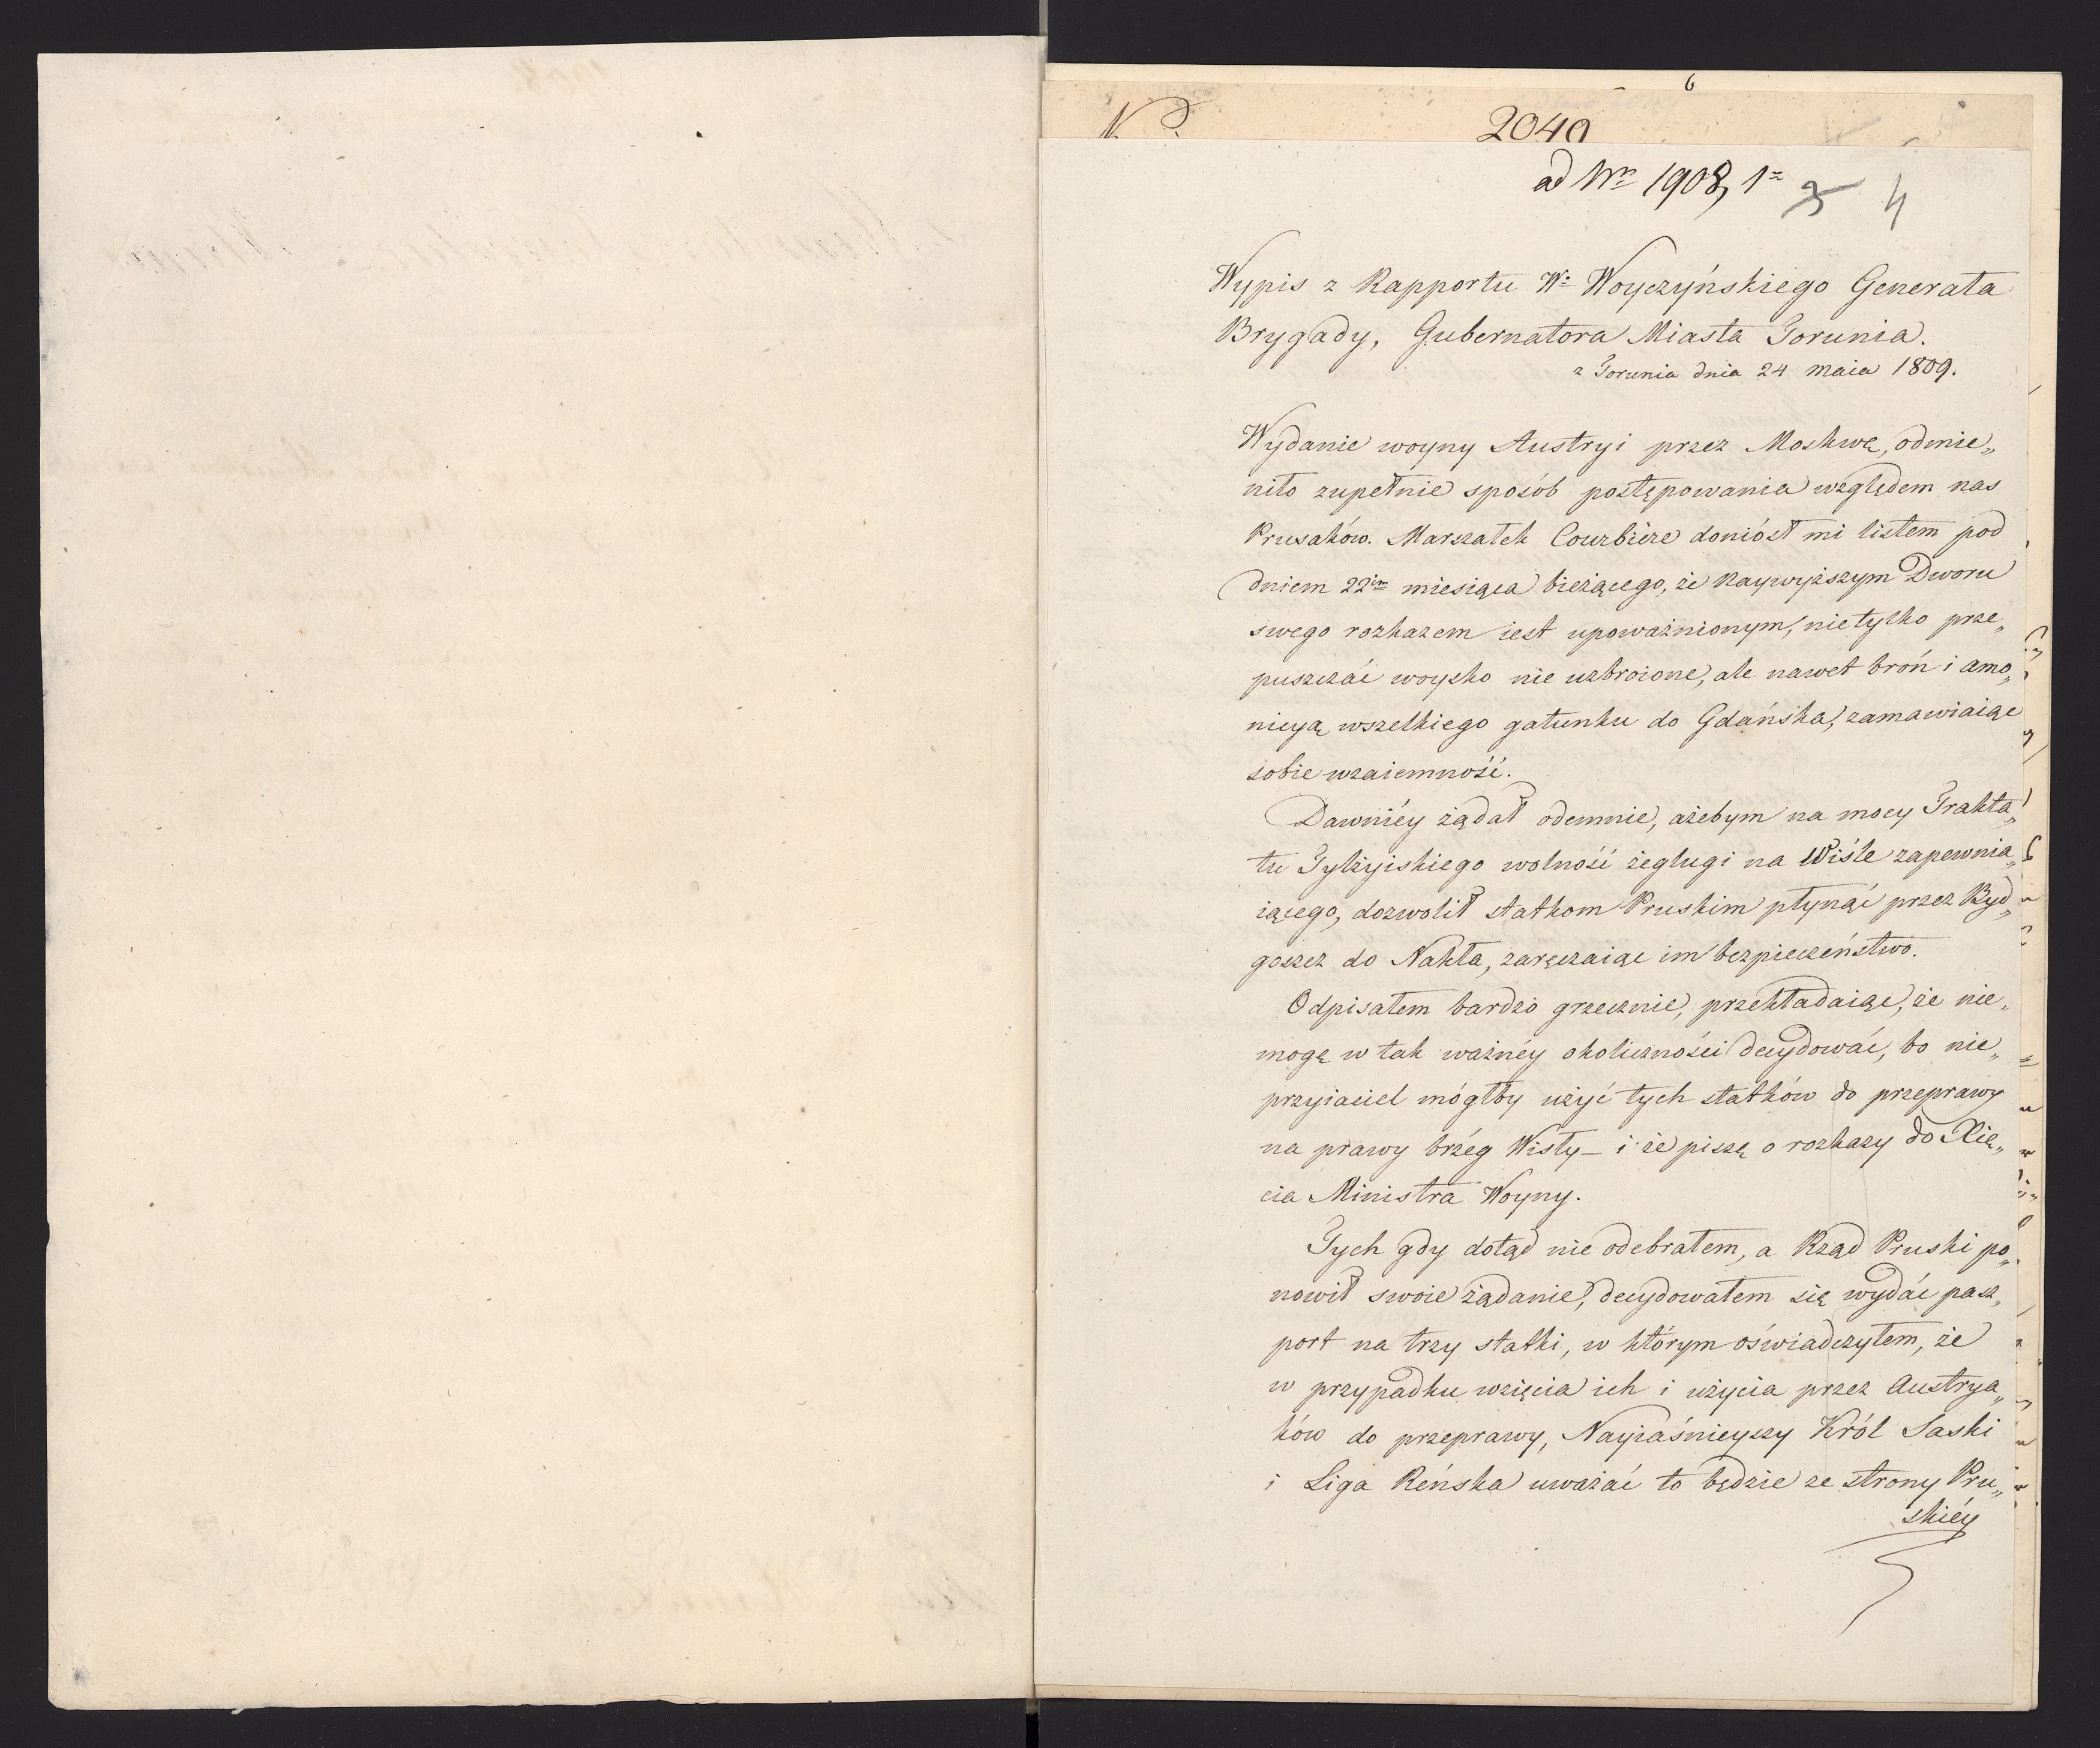 6
No
2040
ad Nro 1908, 1
3 4
Wypis z Rapportu W. Woyczyńskiego Generała
Brygady, Gubernatora Miasta Torunia.
z Torunia dnia 24 maia 1809.
Wydanie woyny Austryi przez Moskwę, odmie„
niło zupełnie sposób postępowania względem nas
Prusaków. Marszałek Courbiere doniósł mi listem pod
dniem 22im miesiąca bieżącego, że Naywyższym Dworu
swego rozkazem iest upoważnionym, nie tylko prze„
puszczać woysko nie uzbroione, ale nawet broń i amo„
nicyą wszelkiego gatunku do Gdańska, zamawiaiąc
sobie wzaiemność.
Dawniéy żądał odemnie, ażebym na mocy Trakta„
tu Tylżyiskiego wolność żeglugi na Wiśle zapewnia„
iącego, dozwolił statkom Pruskim płynąć przez Byd„
goszcz do Nakła, zaręczaiąc im bezpieczeństwo.
Odpisałem bardzo grzecznie, przekładaiąc, że nie„
mogę w tak ważnéy okoliczności decydować, bo nie„
przyiaciel mógłby użyć tych statków do przeprawy
na prawy brzég Wisły – i że piszę o rozkazy do Xię„
cia Ministra Woyny.
Tych gdy dotąd nie odebrałem, a Rząd Pruski po„
nowił swoie żądanie, decydowałem się wydać pasz„
port na trzy statki, w którym oświadczyłem, że
w przypadku wzięcia ich i użycia przez Austrya„
ków do przeprawy, Nayiaśnieyszy Król Saski
i Liga Reńska uważać to będzie ze strony Pru„
skiéy